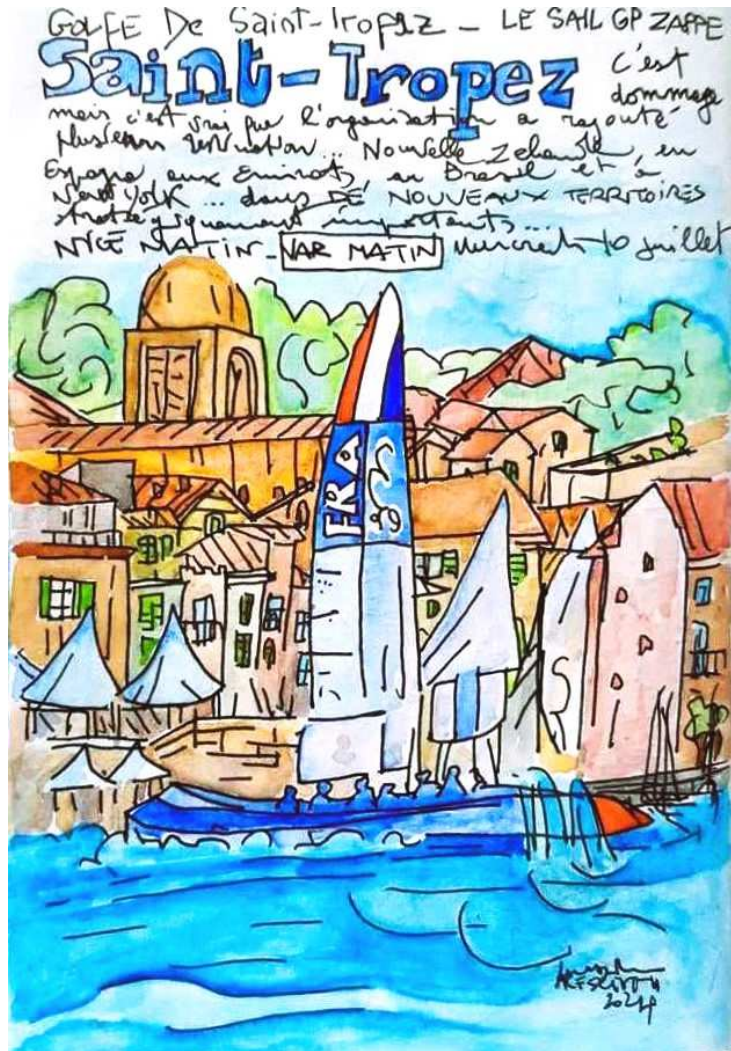 GOLFE De Saint-Tropez _ LE SAIL GP ZAPPE
Saint-Tropez c'est
dommage
mais c'est vrai que l'organisation a rajouté
plusieurs ... Nouvelle Zélande, en
Espagne aux Emirats, au Brésil et à
New York ... dans DE NOUVEAUX TERRITOIRES
stratégiquement importants...
NICE MATIN_ VAR MATIN Mercredi 10 juillet
FRA
5
2024